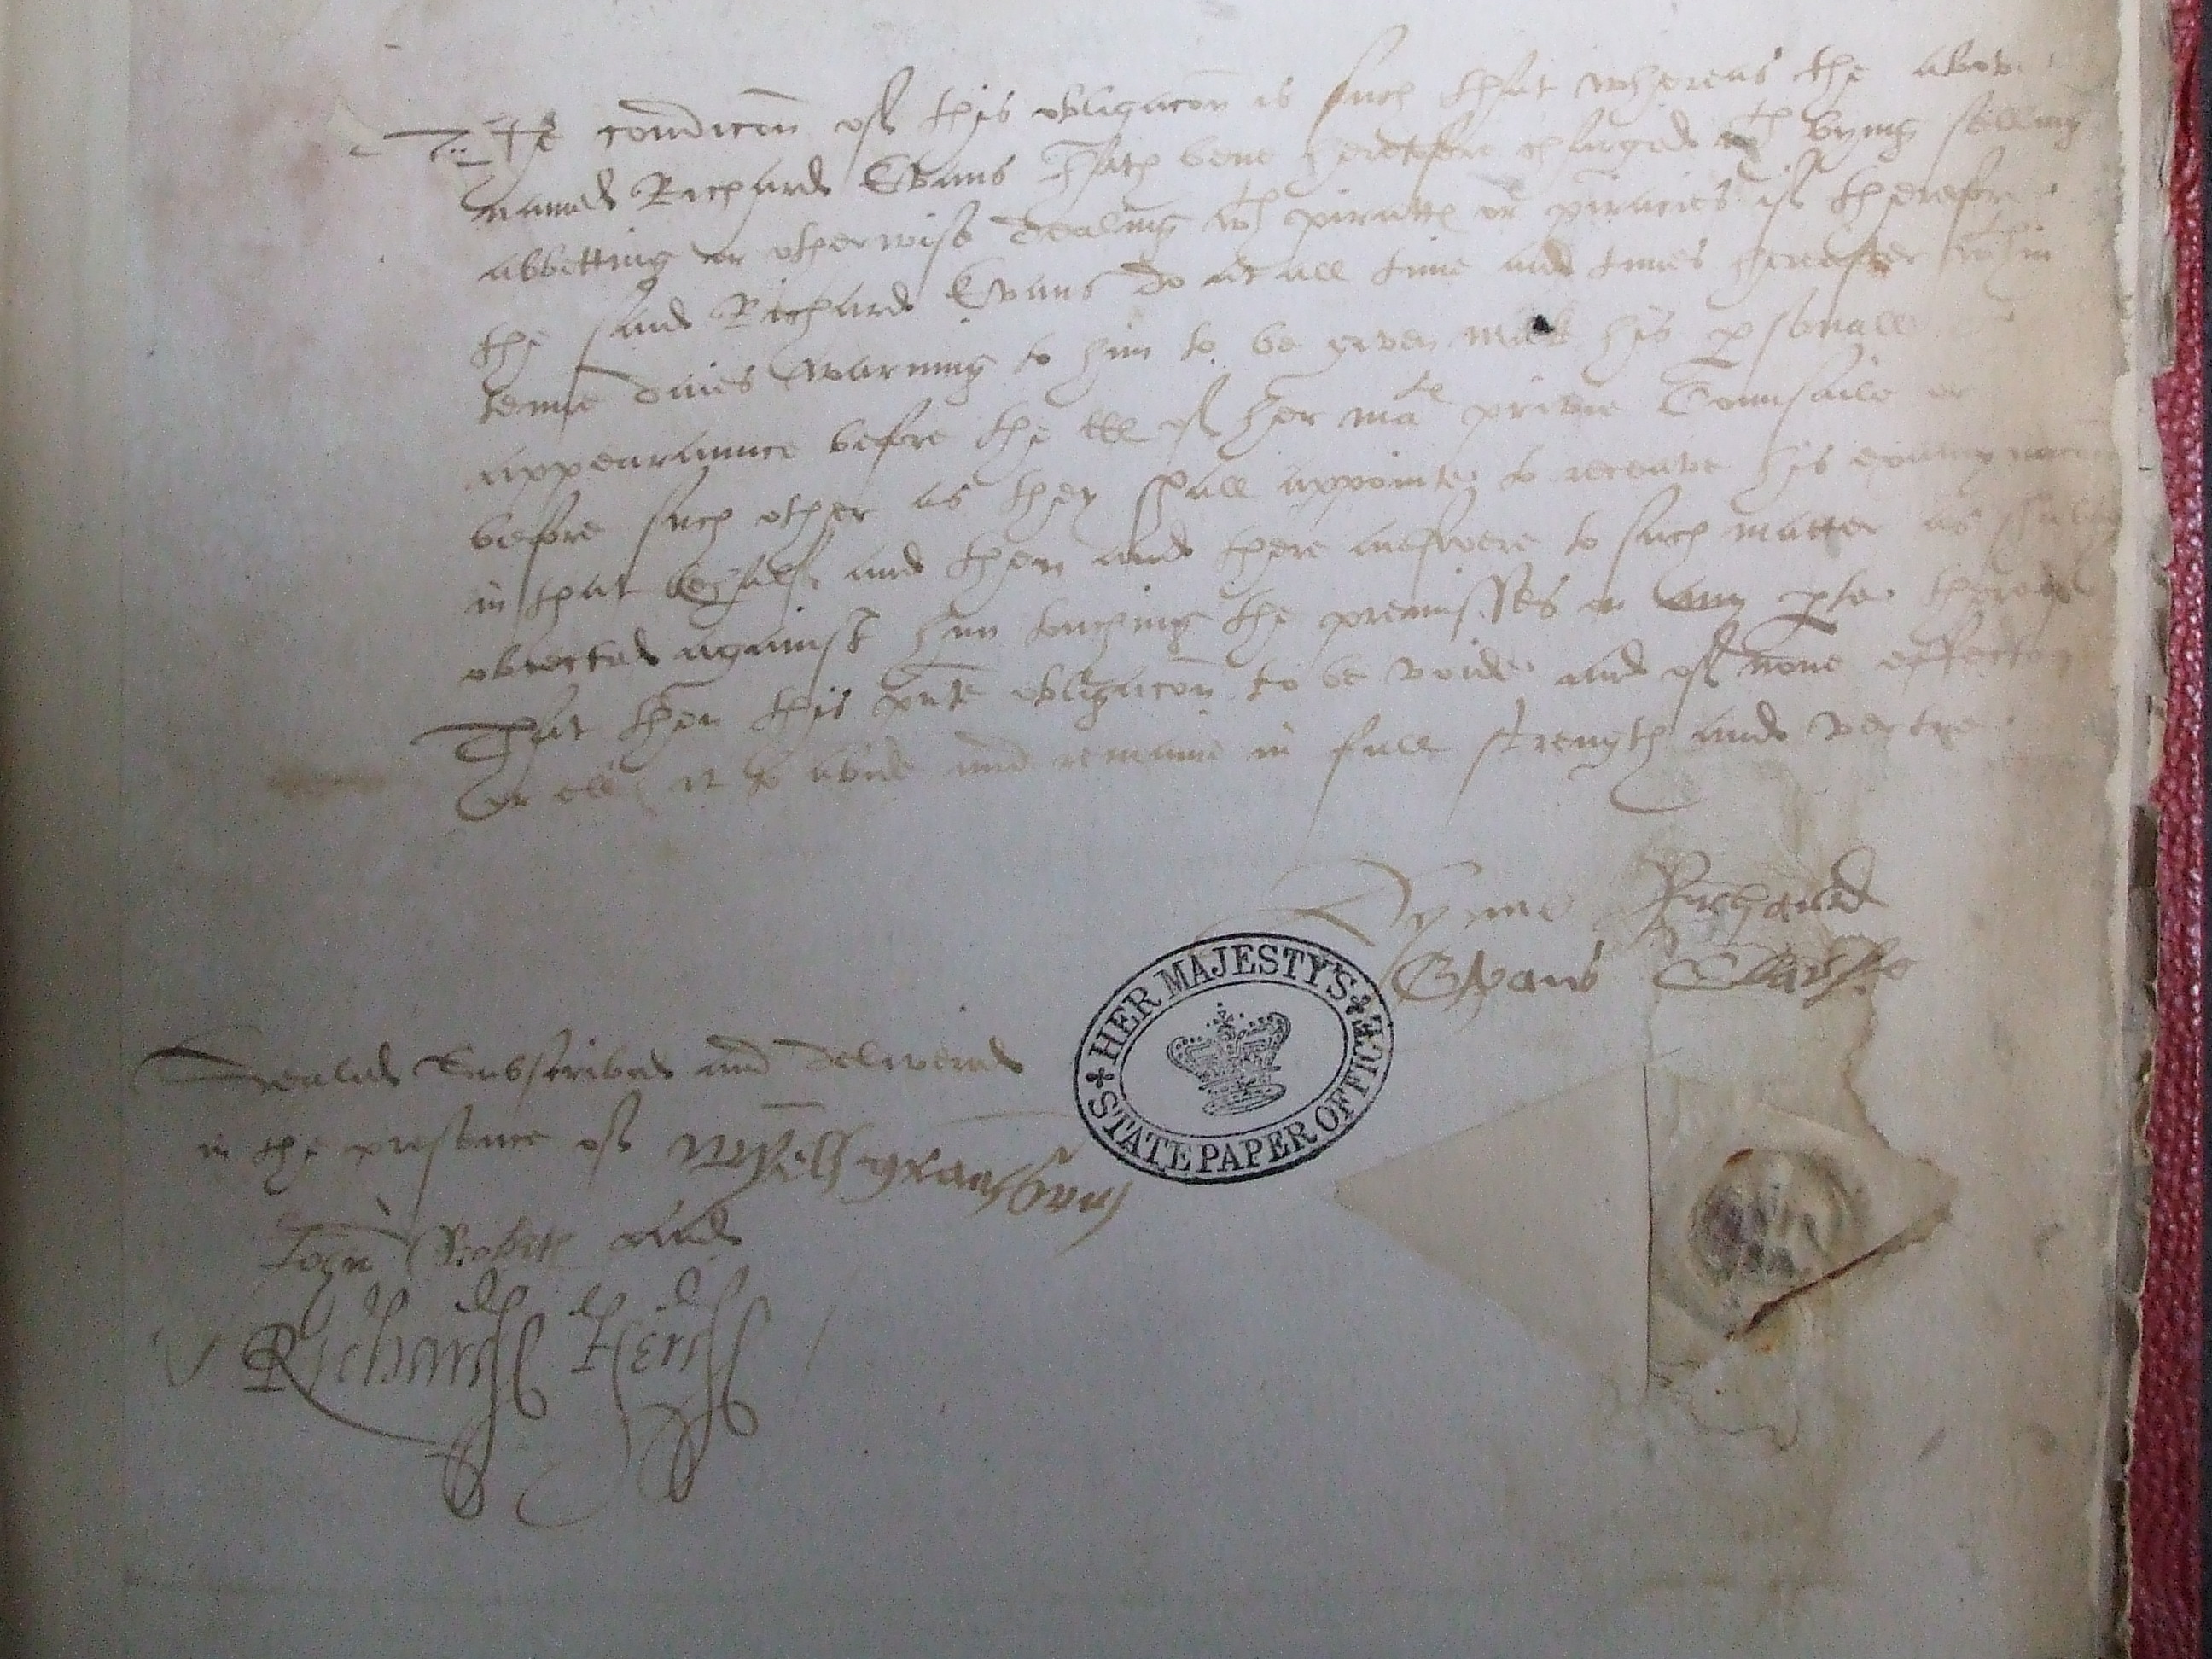 The condicon of this obligacon is such that whereas the above
named Richard Evans Hath bene heretofore charged wth bying selling
abbetting or otherwise dealing wth piratte or piracies if therefore
the said Richard Evans do at all time and times hereafter wthin
tenne daies warning to him to be given make his psonall
appearaunce before the lll of her mate privie Counsaile or
before such other as they shall appointe to receave his examynacon
in that behalf and then and there answere to such matter as shalbe
obiected against him touching the premisses or any pte thereof
That then this pnte obligacon to be voide and of none effecte
Or ell it to abide and remaine in full strength and vertue
Richard
Evans
Sealed Subscribed and delivered
in the presence of
John and
Richard
HER MAJESTY'S STATE PAPER OFFICE